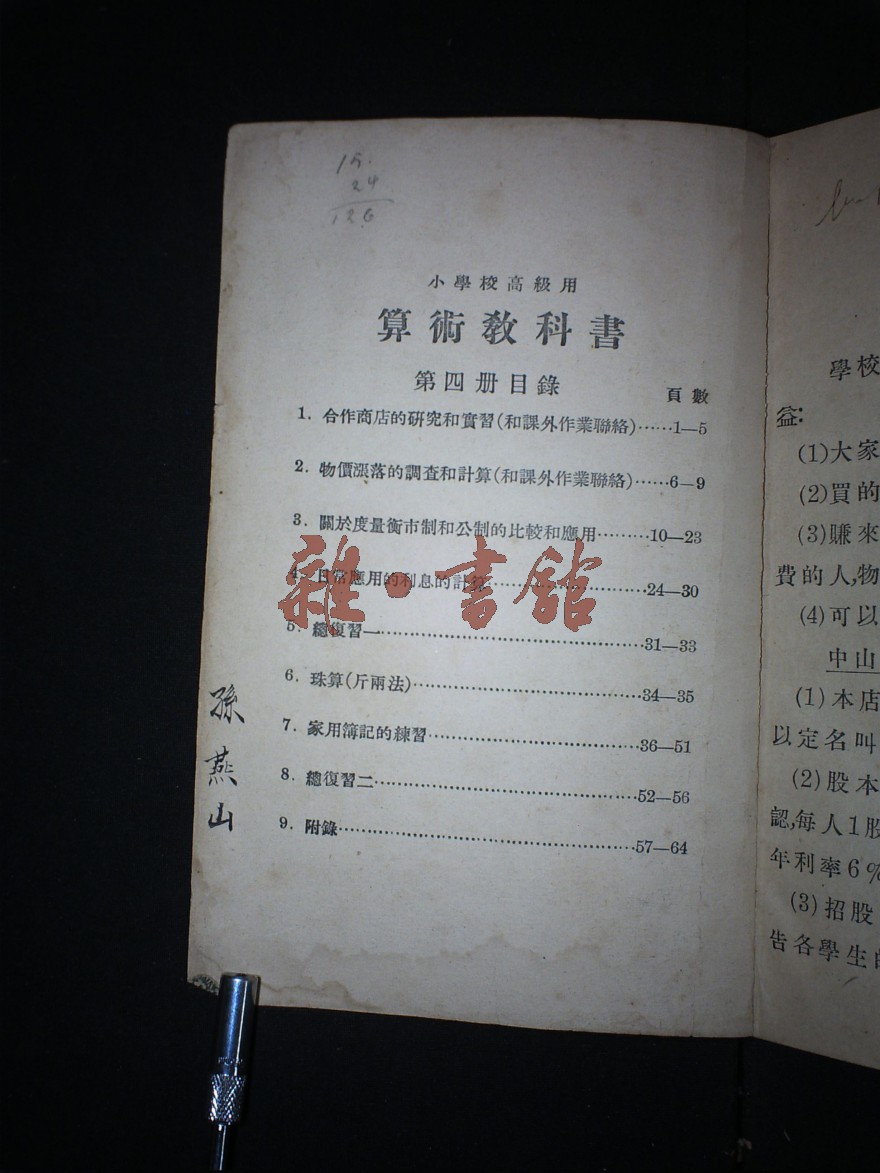 15
24
126
小學校高級用
算術教科書
第四册目錄
頁數
1. 合作商店的研究和實習(和課外作業聯絡)……1—5
2. 物價漲落的調查和計算(和課外作業聯絡)……6—9
3. 關於度量衡市制和公制的比較和應用………10—23
4. 日常應用的利息的計算…………………………24—30
5. 總復習一……………………………………………31—33
6. 珠算(斤兩法)………………………………………34—35
7. 家用簿記的練習……………………………………36—51
8. 總復習二……………………………………………52—56
9. 附錄…………………………………………………57—64
孫燕山
雜·書館
學校
益:
(1)大家
(2)買的
(3)賺來
費的人,物
(4)可以
中山
(1)本店
以定名叫
(2)股本
認,每人1股
年利率6%
(3)招股
告各學生的